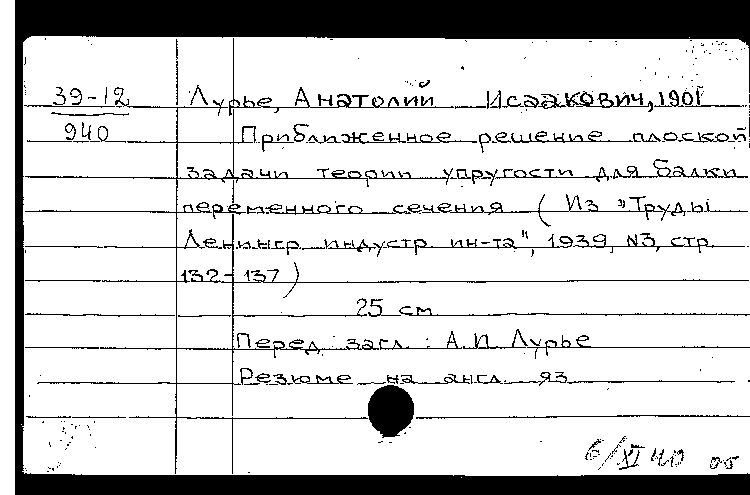 39-12
940
Лурье, Анатолий Исаакович, 1901
Приближенное решение плоской
задачи теории упругости для балки
переменного сечения (Из "Труды
Ленингр. индустр. ин-та", 1939, N3, стр.
132-137)
25 см
Перед загл.: А.И. Лурье
Резюме на англ. яз.
6/XI 40